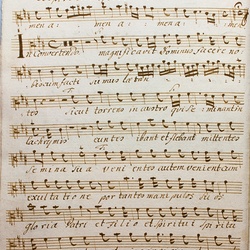 men a men a men a
In convertendo magnificavit Dominus facere no
biscum facti sumus læ tan
tes sicut torrens in austro qui se minant in
lachrymis euntes ibant et flebant mittentes
semina sua venientes autem venient cum
exulta tione portantes manipulos suos
gloria Patri et Filio et Spiritui